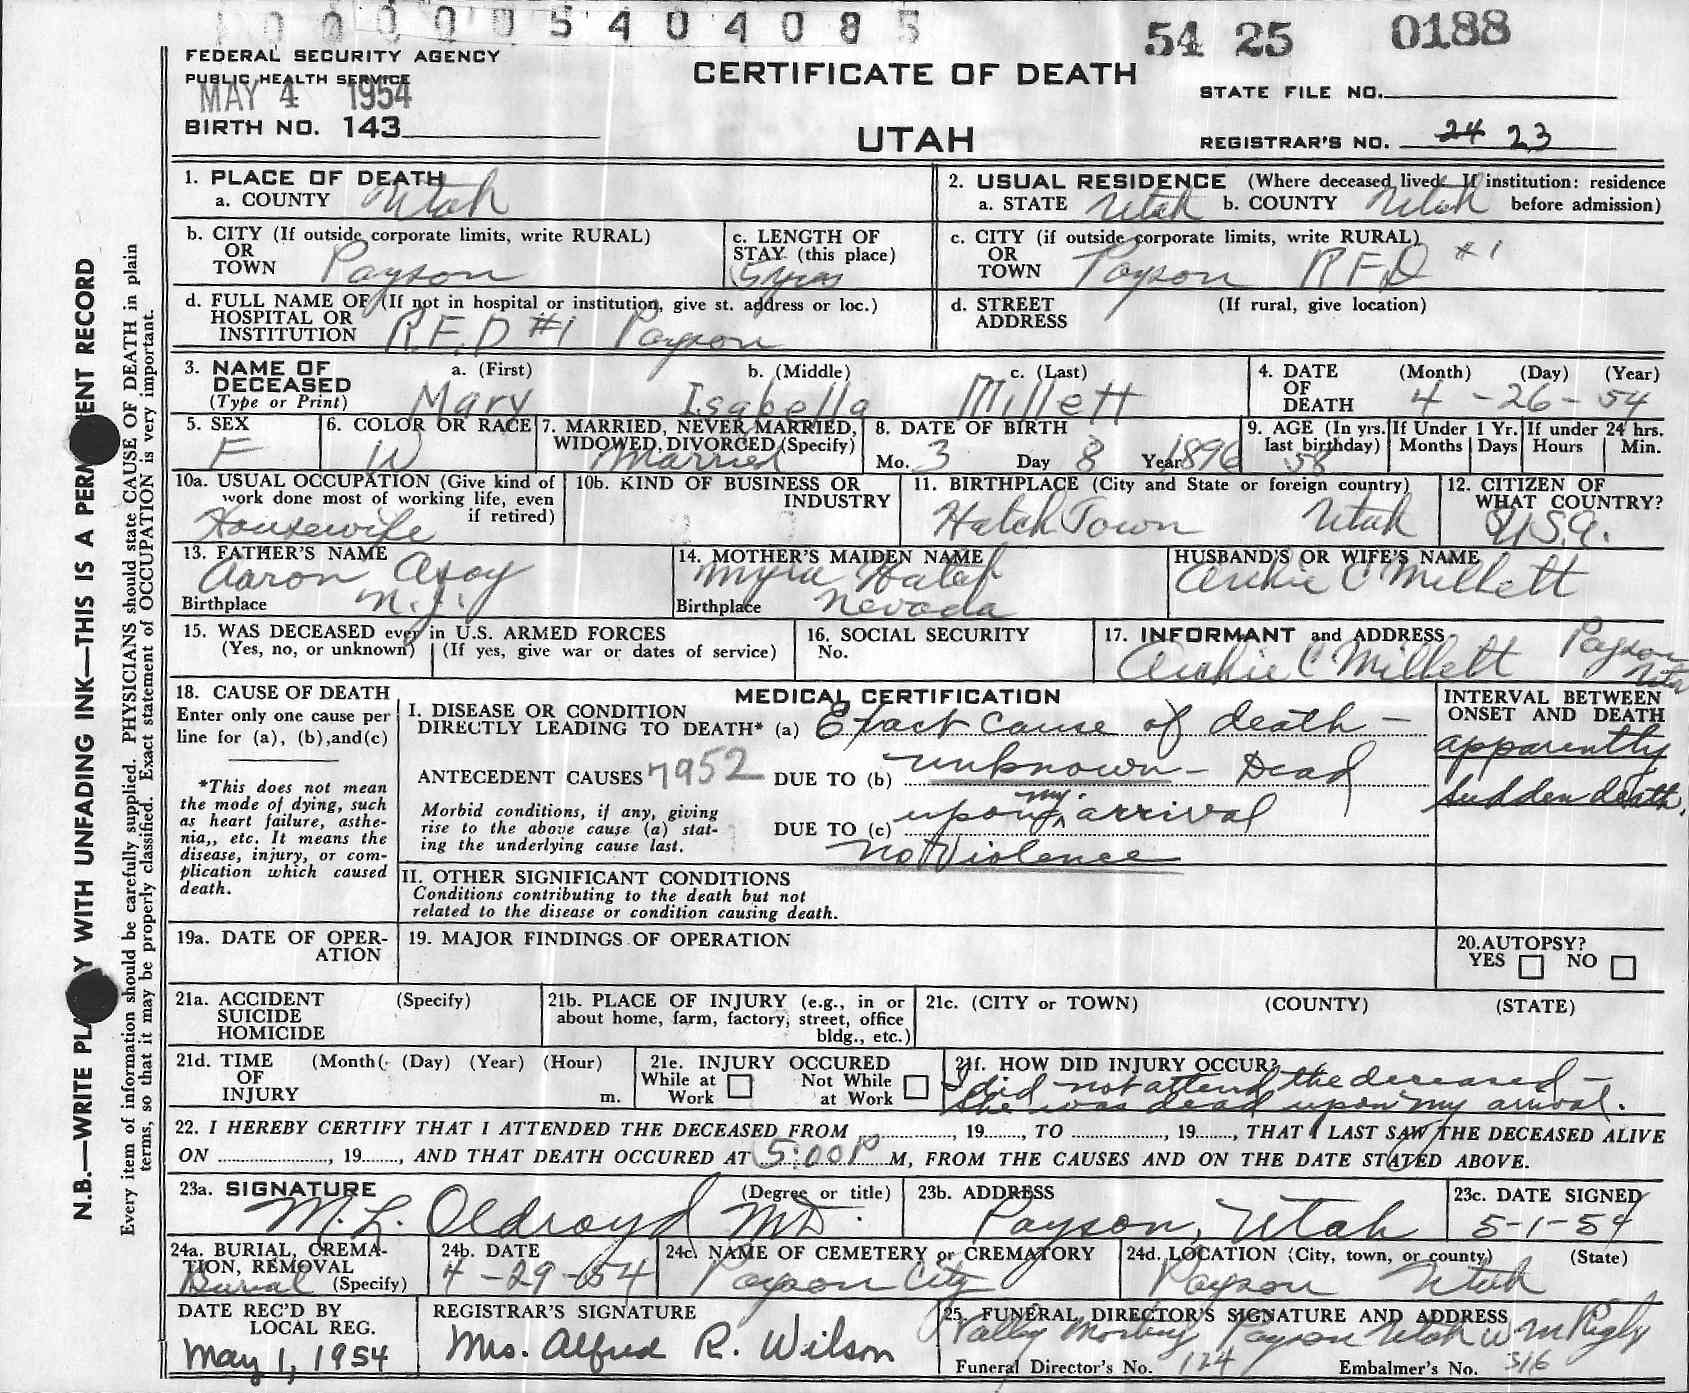 0000005404085
54 25 0188
FEDERAL SECURITY AGENCY
PUBLIC HEALTH SERVICE
MAY 4 1954
CERTIFICATE OF DEATH
STATE FILE NO.
BIRTH NO. 143
UTAH
REGISTRAR'S NO. 24 23
1. PLACE OF DEATH
a. COUNTY Utah
2. USUAL RESIDENCE (Where deceased lived. If institution: residence
a. STATE Utah b. COUNTY Utah before admission)
b. CITY (If outside corporate limits, write RURAL)
OR
TOWN Payson
c. LENGTH OF
STAY (this place)
5 yrs
c. CITY (if outside corporate limits, write RURAL)
OR
TOWN Payson RFD #1
d. FULL NAME OF (If not in hospital or institution, give st. address or loc.)
HOSPITAL OR
INSTITUTION R.F.D #1 Payson
d. STREET (If rural, give location)
ADDRESS
3. NAME OF a. (First) b. (Middle) c. (Last)
DECEASED
(Type or Print) Mary Isabella Millett
4. DATE (Month) (Day) (Year)
OF
DEATH 4 - 26 - 54
5. SEX
F
6. COLOR OR RACE
W
7. MARRIED, NEVER MARRIED,
WIDOWED, DIVORCED (Specify)
Married
8. DATE OF BIRTH
Mo. 3 Day 8 Year 1896
9. AGE (In yrs. last birthday)
58
If Under 1 Yr.
Months Days
If under 24 hrs.
Hours Min.
10a. USUAL OCCUPATION (Give kind of
work done most of working life, even
if retired)
Housewife
10b. KIND OF BUSINESS OR
INDUSTRY
11. BIRTHPLACE (City and State or foreign country)
Hatch Town Utah
12. CITIZEN OF
WHAT COUNTRY?
U.S.A.
13. FATHER'S NAME
Aaron Asay
Birthplace N.J.
14. MOTHER'S MAIDEN NAME
Myra Hatch
Birthplace Nevada
HUSBAND'S OR WIFE'S NAME
Archie C Millett
15. WAS DECEASED ever in U.S. ARMED FORCES
(Yes, no, or unknown) (If yes, give war or dates of service)
16. SOCIAL SECURITY
No.
17. INFORMANT and ADDRESS Payson
Archie C Millett Utah
18. CAUSE OF DEATH
Enter only one cause per
line for (a), (b),and(c)
*This does not mean
the mode of dying, such
as heart failure, asthe-
nia,, etc. It means the
disease, injury, or com-
plication which caused
death.
MEDICAL CERTIFICATION
I. DISEASE OR CONDITION
DIRECTLY LEADING TO DEATH* (a) Exact cause of death -
ANTECEDENT CAUSES 7952 DUE TO (b) unknown - Dead
Morbid conditions, if any, giving
rise to the above cause (a) stat-
ing the underlying cause last.
DUE TO (c) upon my arrival
no violence
INTERVAL BETWEEN
ONSET AND DEATH
apparently
sudden death.
II. OTHER SIGNIFICANT CONDITIONS
Conditions contributing to the death but not
related to the disease or condition causing death.
19a. DATE OF OPER-
ATION
19. MAJOR FINDINGS OF OPERATION
20.AUTOPSY?
YES NO
21a. ACCIDENT (Specify)
SUICIDE
HOMICIDE
21b. PLACE OF INJURY (e.g., in or
about home, farm, factory, street, office
bldg., etc.)
21c. (CITY or TOWN) (COUNTY) (STATE)
21d. TIME (Month( (Day) (Year) (Hour)
OF
INJURY m.
21e. INJURY OCCURED
While at Work
Not While at Work
21f. HOW DID INJURY OCCUR?
I did not attend the deceased -
She was dead upon my arrival.
22. I HEREBY CERTIFY THAT I ATTENDED THE DECEASED FROM ............, 19......, TO ..............., 19......, THAT I LAST SAW THE DECEASED ALIVE
ON ................, 19......, AND THAT DEATH OCCURED AT 5:00 P M, FROM THE CAUSES AND ON THE DATE STATED ABOVE.
23a. SIGNATURE (Degree or title)
M. L. Oldroyd MD.
23b. ADDRESS
Payson, Utah
23c. DATE SIGNED
5-1-54
24a. BURIAL, CREMA-
TION, REMOVAL
Burial (Specify)
24b. DATE
4-29-54
24c. NAME OF CEMETERY or CREMATORY
Payson City
24d. LOCATION (City, town, or county) (State)
Payson Utah
DATE REC'D BY
LOCAL REG.
May 1, 1954
REGISTRAR'S SIGNATURE
Mrs. Alfred R. Wilson
25. FUNERAL DIRECTOR'S SIGNATURE AND ADDRESS
Valley Mortuary Payson Utah
Funeral Director's No. 124 Embalmer's No. 316
N.B.—WRITE PLA Y WITH UNFADING INK—THIS IS A PERMA ENT RECORD
Every item of information should be carefully supplied. PHYSICIANS should state CAUSE OF DEATH in plain
terms, so that it may be properly classified. Exact statement of OCCUPATION is very important.